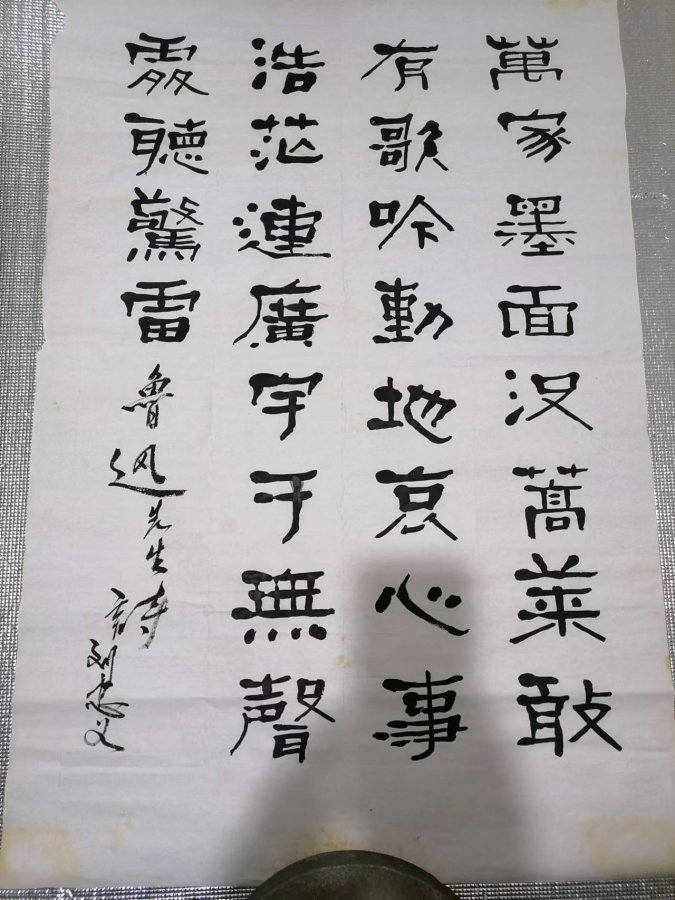 萬家墨面没蒿萊敢
有歌吟動地哀心事
浩茫連廣宇于無聲
處聽驚雷
魯迅先生詩
刘忠义